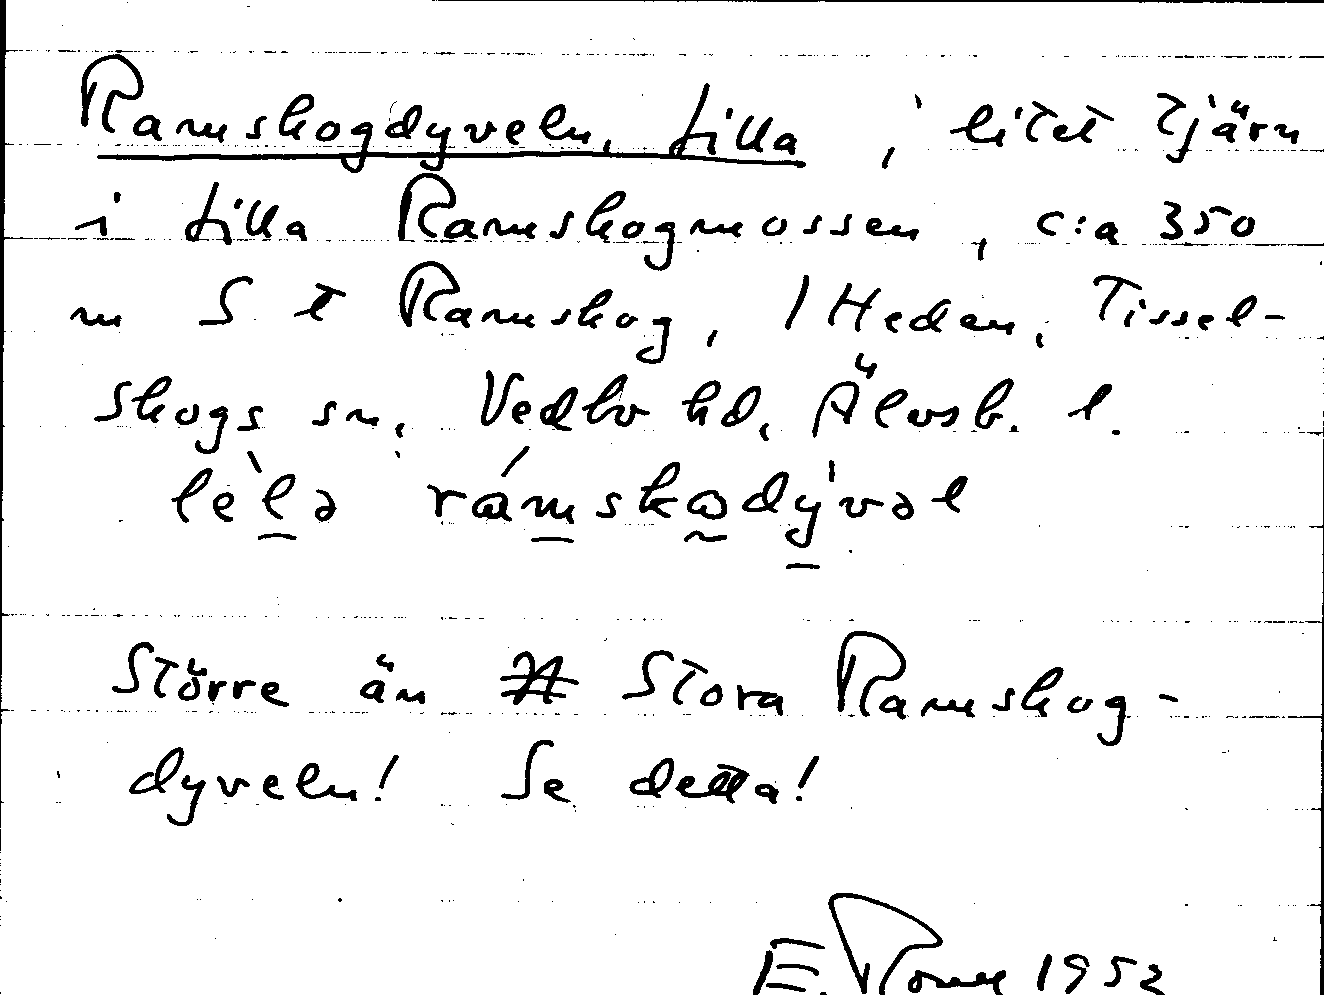 Ramskogdyveln, Lilla, litet tjärn
i Lilla Ramskogmossen, c:a 350
m S t Ramskog, 1 Heden, Tissel-
skogs sn, Vedbo hd, Älvsb. l.
lèlə rámskɷdývəl
Större än Stora Ramskog-
dyveln! Se detta!
E. 1952